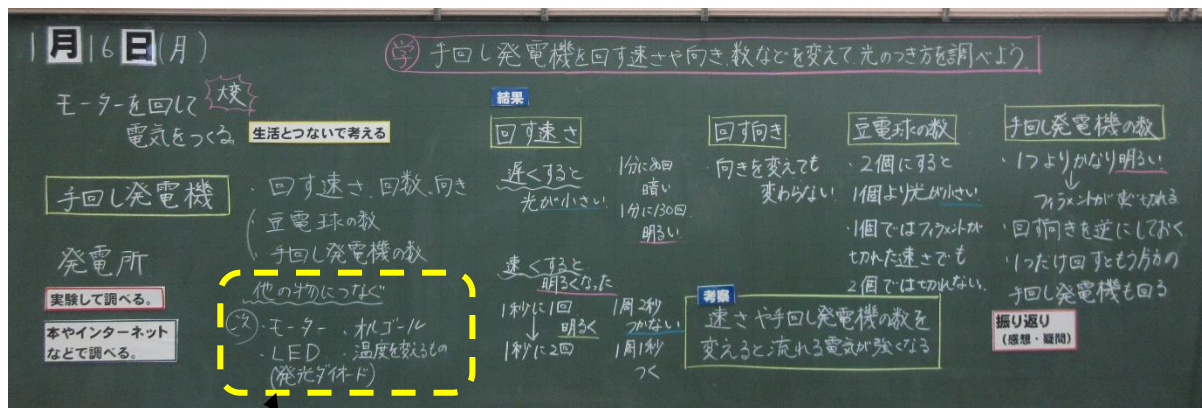 1月16日(月)
学 手回し発電機を回す速さや向き、数などを変えて、光のつき方を調べよう。
モーターを回して 大変
電気をつくる。
生活とつないで考える
手回し発電機
発電所
実験して調べる。
本やインターネット
などで調べる。
・回す速さ、回数、向き
・豆電球の数
・手回し発電機の数
他の物につなぐ
次 ・モーター ・オルゴール
・LED ・温度を変えるもの
(発光ダイオード)
結果
回す速さ
遅くすると
光が小さい
1分に
暗い
1分に130回
明るい
速くすると
明るくなった
1秒に1回
↓ 明るく
1秒に2回
1周2秒
つかない
1周1秒
つく
回す向き
・向きを変えても
変わらない
豆電球の数
・2個にすると
1個より光が小さい
・1個ではフィラメントが
切れた速さでも
2個では切れない。
手回し発電機の数
・1つよりかなり明るい
↓
フィラメントがすぐ切れる
・回す向きを逆にしておく
・1つだけ回すともう片方の
手回し発電機も回る
考察
速さや手回し発電機の数を
変えると流れる電気が強くなる
振り返り
(感想・疑問)